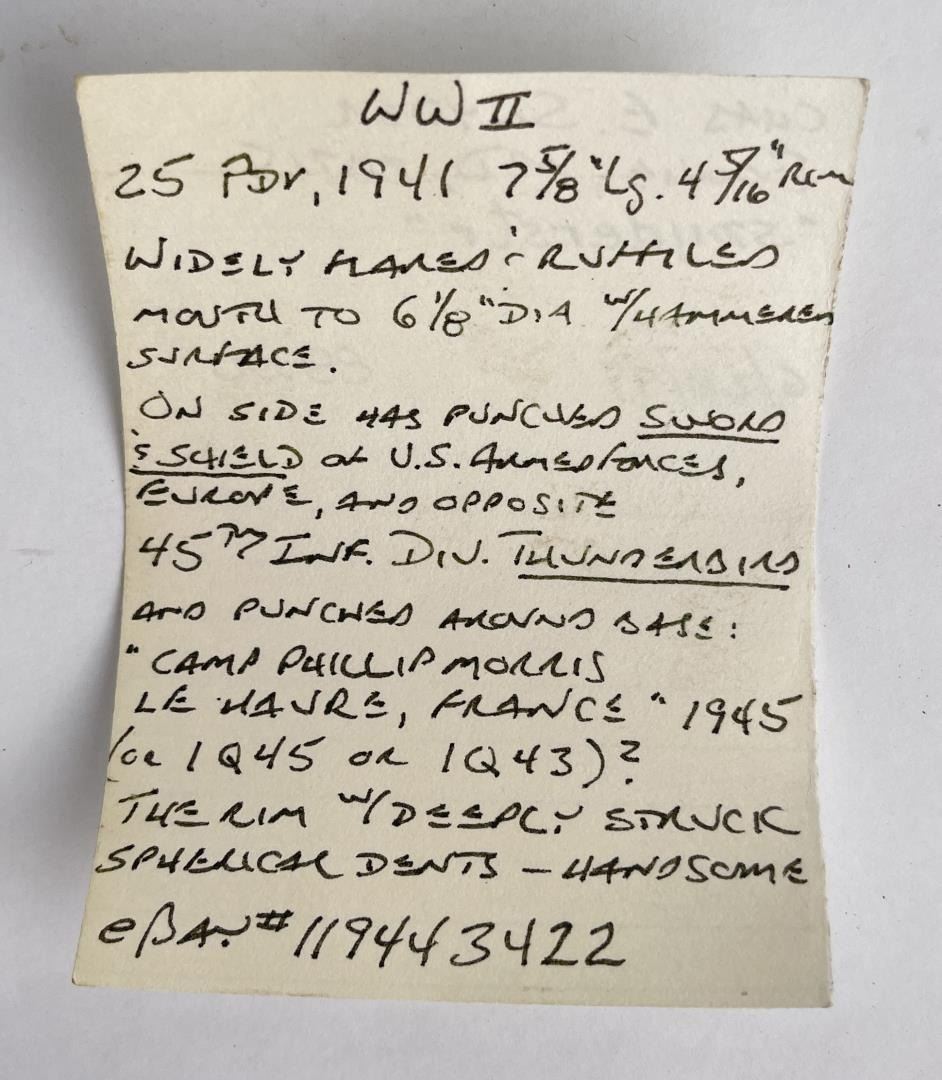 WW II
25 PDr, 1941 7 5/8" Lg. 4 5/16" Rim
WIDELY FLARED & RUFFLED
MOUTH TO 6 1/8" DIA W/HAMMERED
SURFACE.
ON SIDE HAS PUNCHED SWORD
& SHIELD OF U.S. ARMED FORCES,
EUROPE, AND OPPOSITE
45TH INF. DIV. THUNDERBIRD
AND PUNCHED AROUND BASE:
"CAMP PHILLIP MORRIS
LE HAVRE, FRANCE" 1945
(or 1Q45 OR 1Q43)?
THE RIM W/DEEPLY STRUCK
SPHERICAL DENTS – HANDSOME
eBAY # 119443422